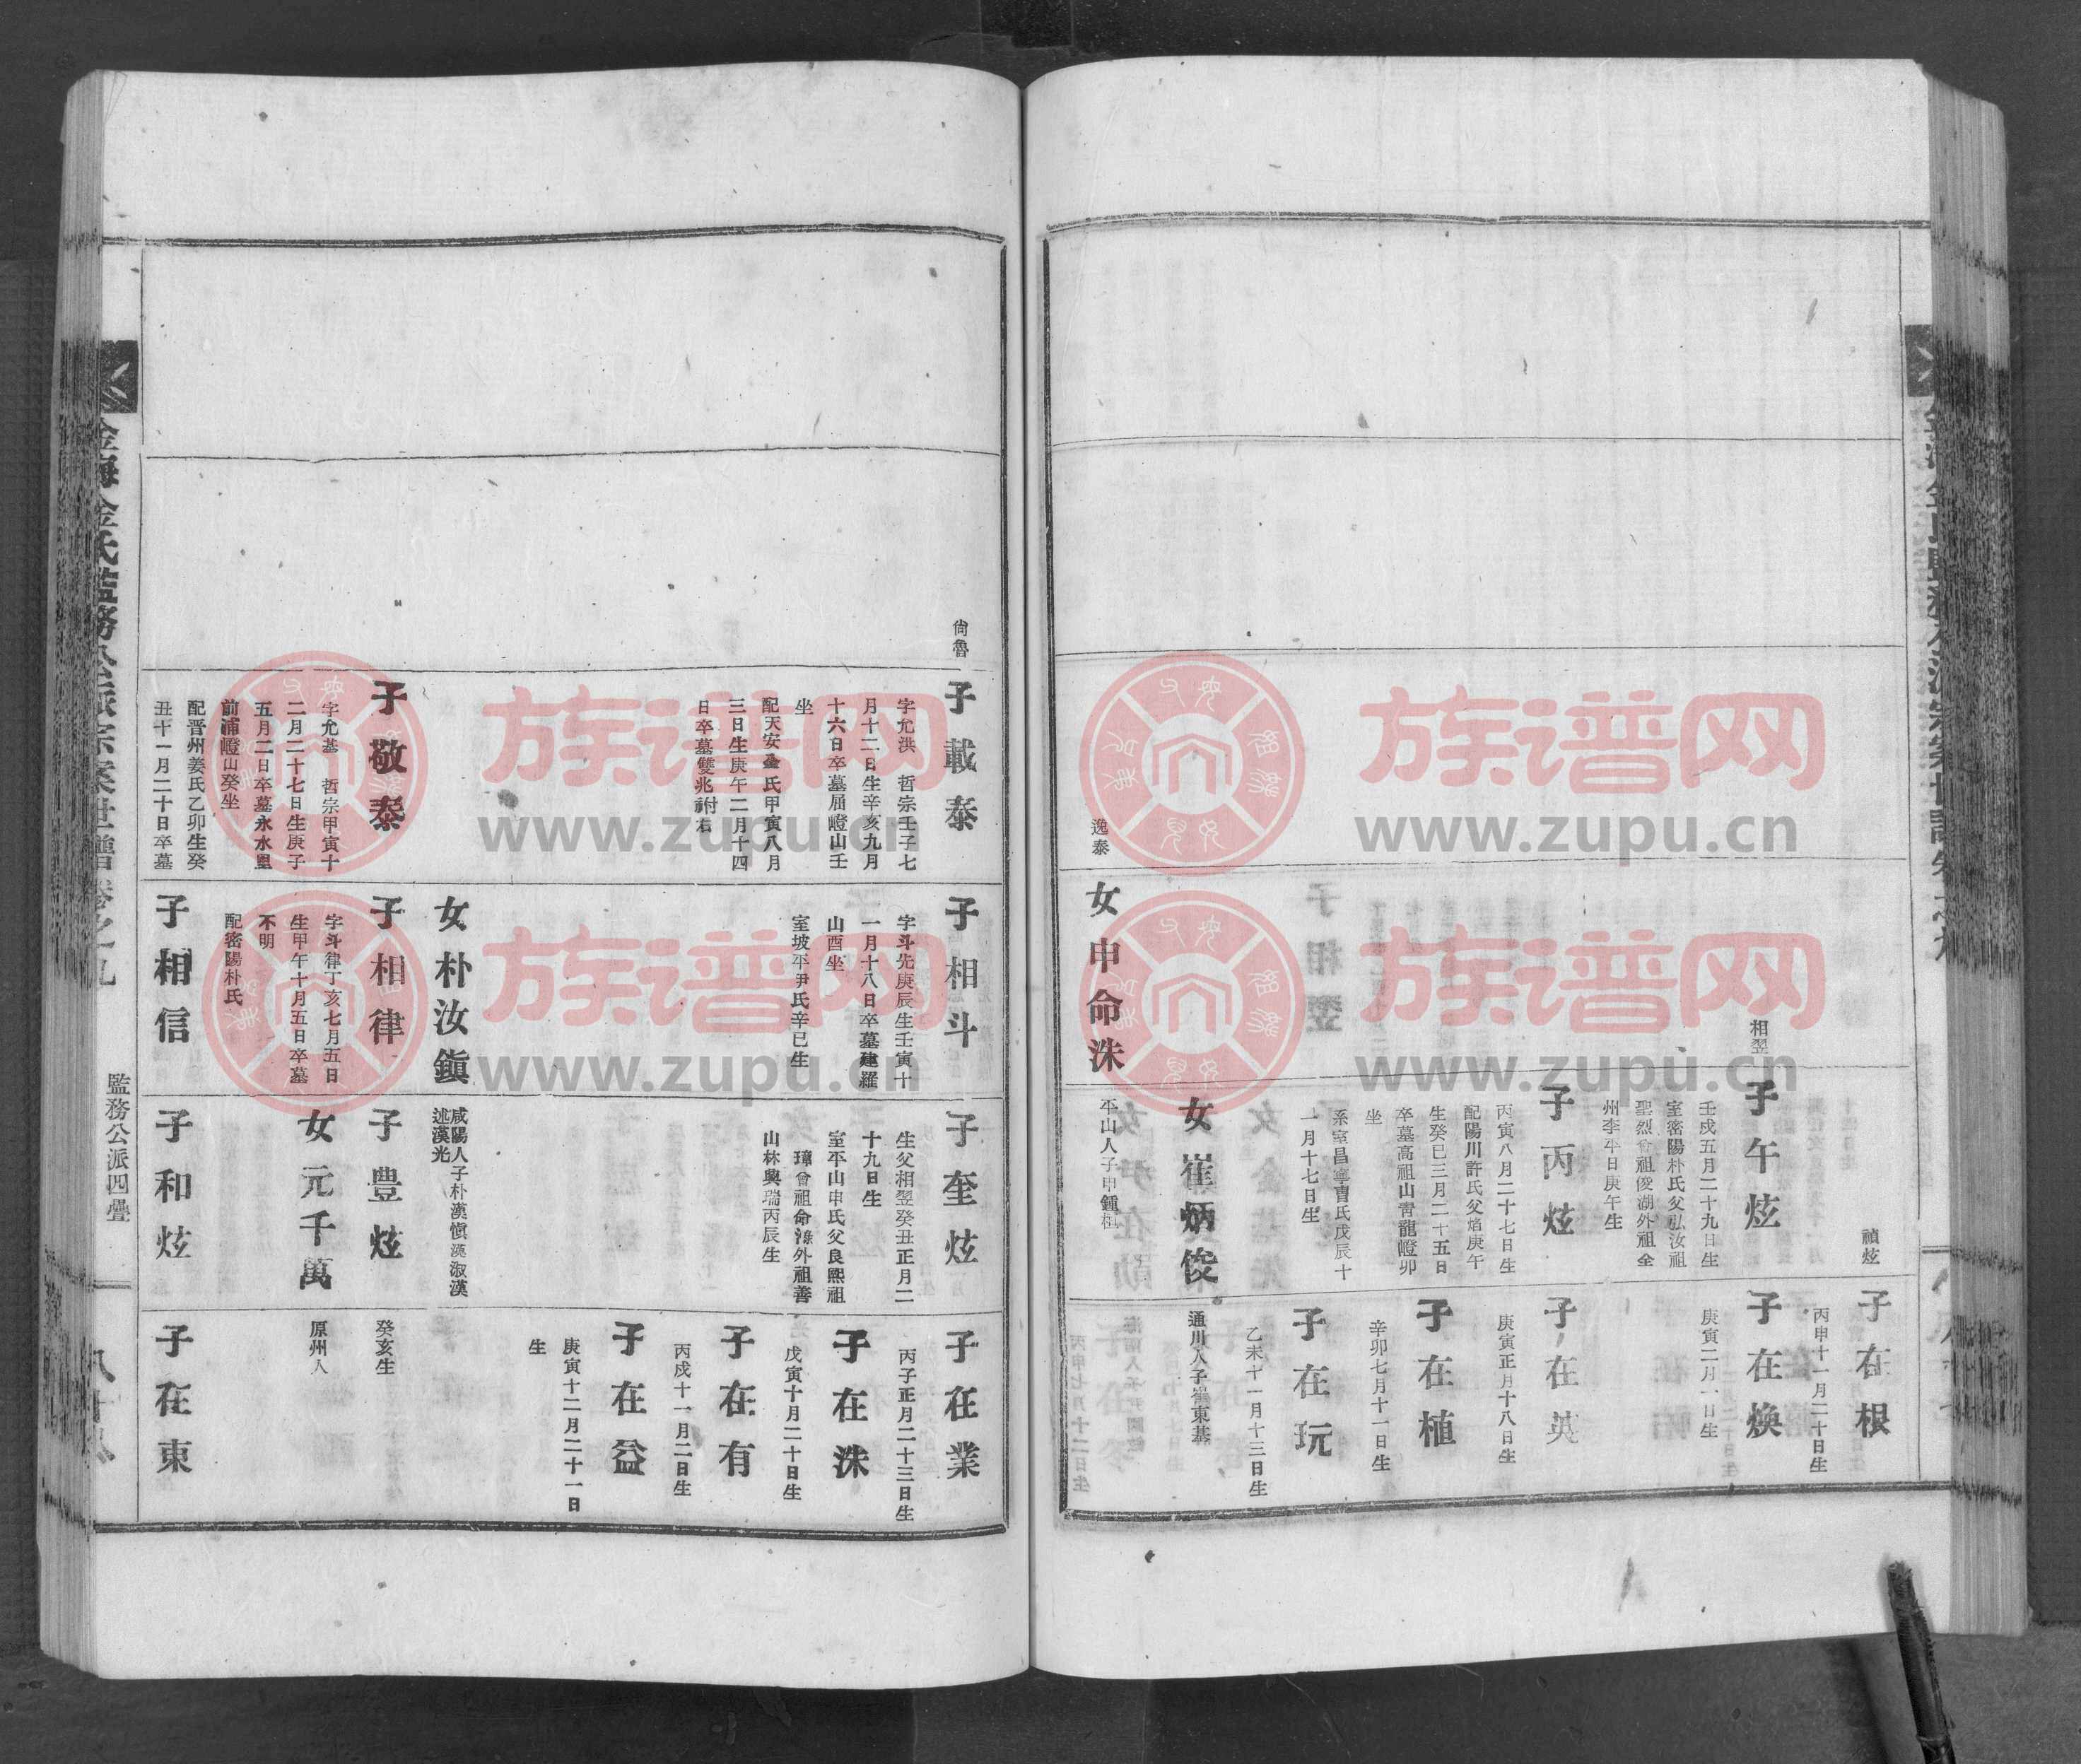 逸泰
女申命洙
相翌
子午炫
壬戌五月二十九日生
室密陽朴氏父弘汝祖
聖烈會祖俊湖外祖全
州李平日庚午生
子丙炫
丙寅八月二十七日生
配陽川許氏父焰庚午
生癸巳三月二十五日
卒墓高祖山靑龍嶝卯
坐
系室昌寧曺氏戊辰十
一月十七日生
女崔炳俊
平山人子申鍾祖
禎炫
子在根
丙申十一月二十日生
子在煥
庚寅二月一日生
子在英
庚寅正月十八日生
子在植
辛卯七月十一日生
子在玩
乙未十一月十三日生
通川人子崔東基
尙魯
子載泰
字允洪 哲宗壬子七
月十二日生辛亥九月
十六日卒墓屈嶝山壬
坐
配天安金氏甲寅八月
三日生庚午二月十四
日卒墓雙兆祔右
子敬泰
字允基 哲宗甲寅十
二月二十七日生庚子
五月二日卒墓永水里
前浦嶝山癸坐
配晋州姜氏乙卯生癸
丑十一月二十日卒墓
子相斗
字斗先庚辰生壬寅十
一月十八日卒墓建羅
山酉坐
室坡平尹氏辛巳生
女朴汝鎭
子相律
字斗律丁亥七月五日
生甲午十月五日卒墓
不明
配密陽朴氏
子相信
子奎炫
生父相翌癸丑正月二
十九日生
室平山申氏父良熙祖
璋會祖命滌外祖善
山林興瑞丙辰生
咸陽人子朴漢愼漢淑漢
述漢光
子豊炫
女元千萬
子和炫
子在業
丙子正月二十三日生
子在洙
戊寅十月二十日生
子在有
丙戌十一月二日生
子在益
庚寅十二月二十一日
生
癸亥生
原州人
子在東
金海金氏監務公派宗案世譜卷之九
監務公派四疊
族谱网
www.zupu.cn
族谱网
www.zupu.cn
族谱网
www.zupu.cn
族谱网
www.zupu.cn